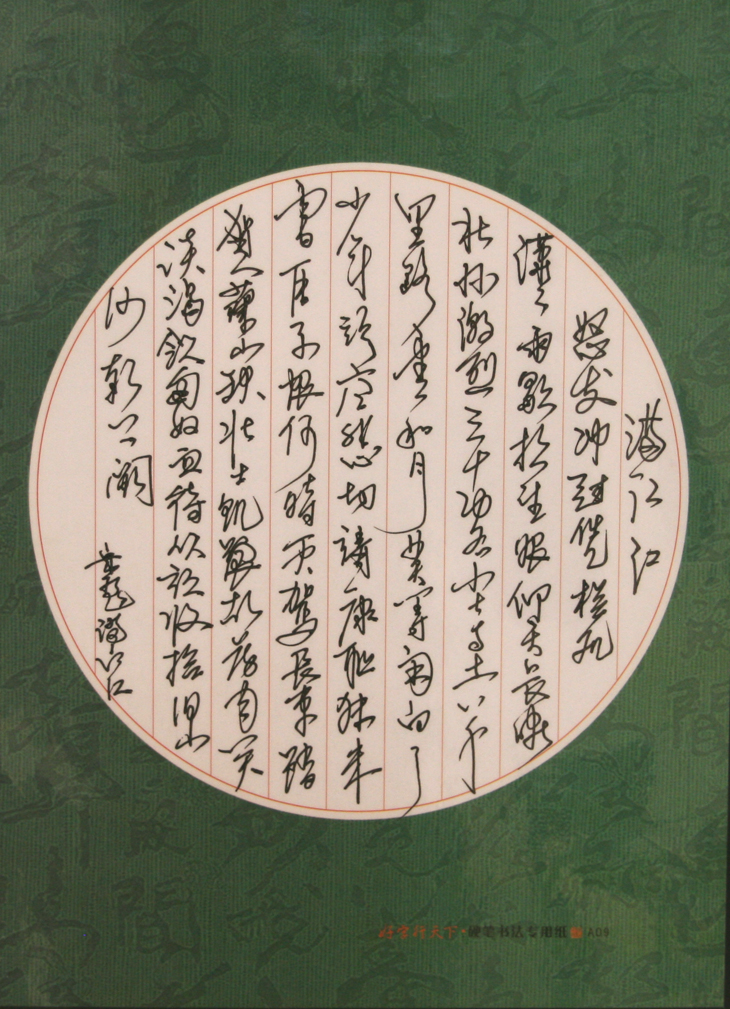 滿江紅
怒发冲冠凭栏处
潇潇雨歇抬望眼仰天长啸
壮怀激烈三十功名尘与土八千
里路雲和月莫等闲白了
少年头空悲切靖康耻猶未
雪臣子恨何时灭驾長車踏
贺蘭山缺壮士饥餐胡虏肉笑
谈渴饮匈奴血待从头收拾旧山
河朝天阙
岳飞满江红
好字行天下·硬笔书法专用纸 A09